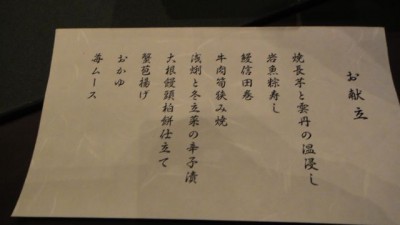 お献立
焼長芋と雲丹の温浸し
岩魚粽寿し
鰻信田巻
牛肉筍狭み焼
浅蜊と冬立菜の辛子漬
大根饅頭柏餅仕立て
蟹芭揚げ
おかゆ
苺ムース